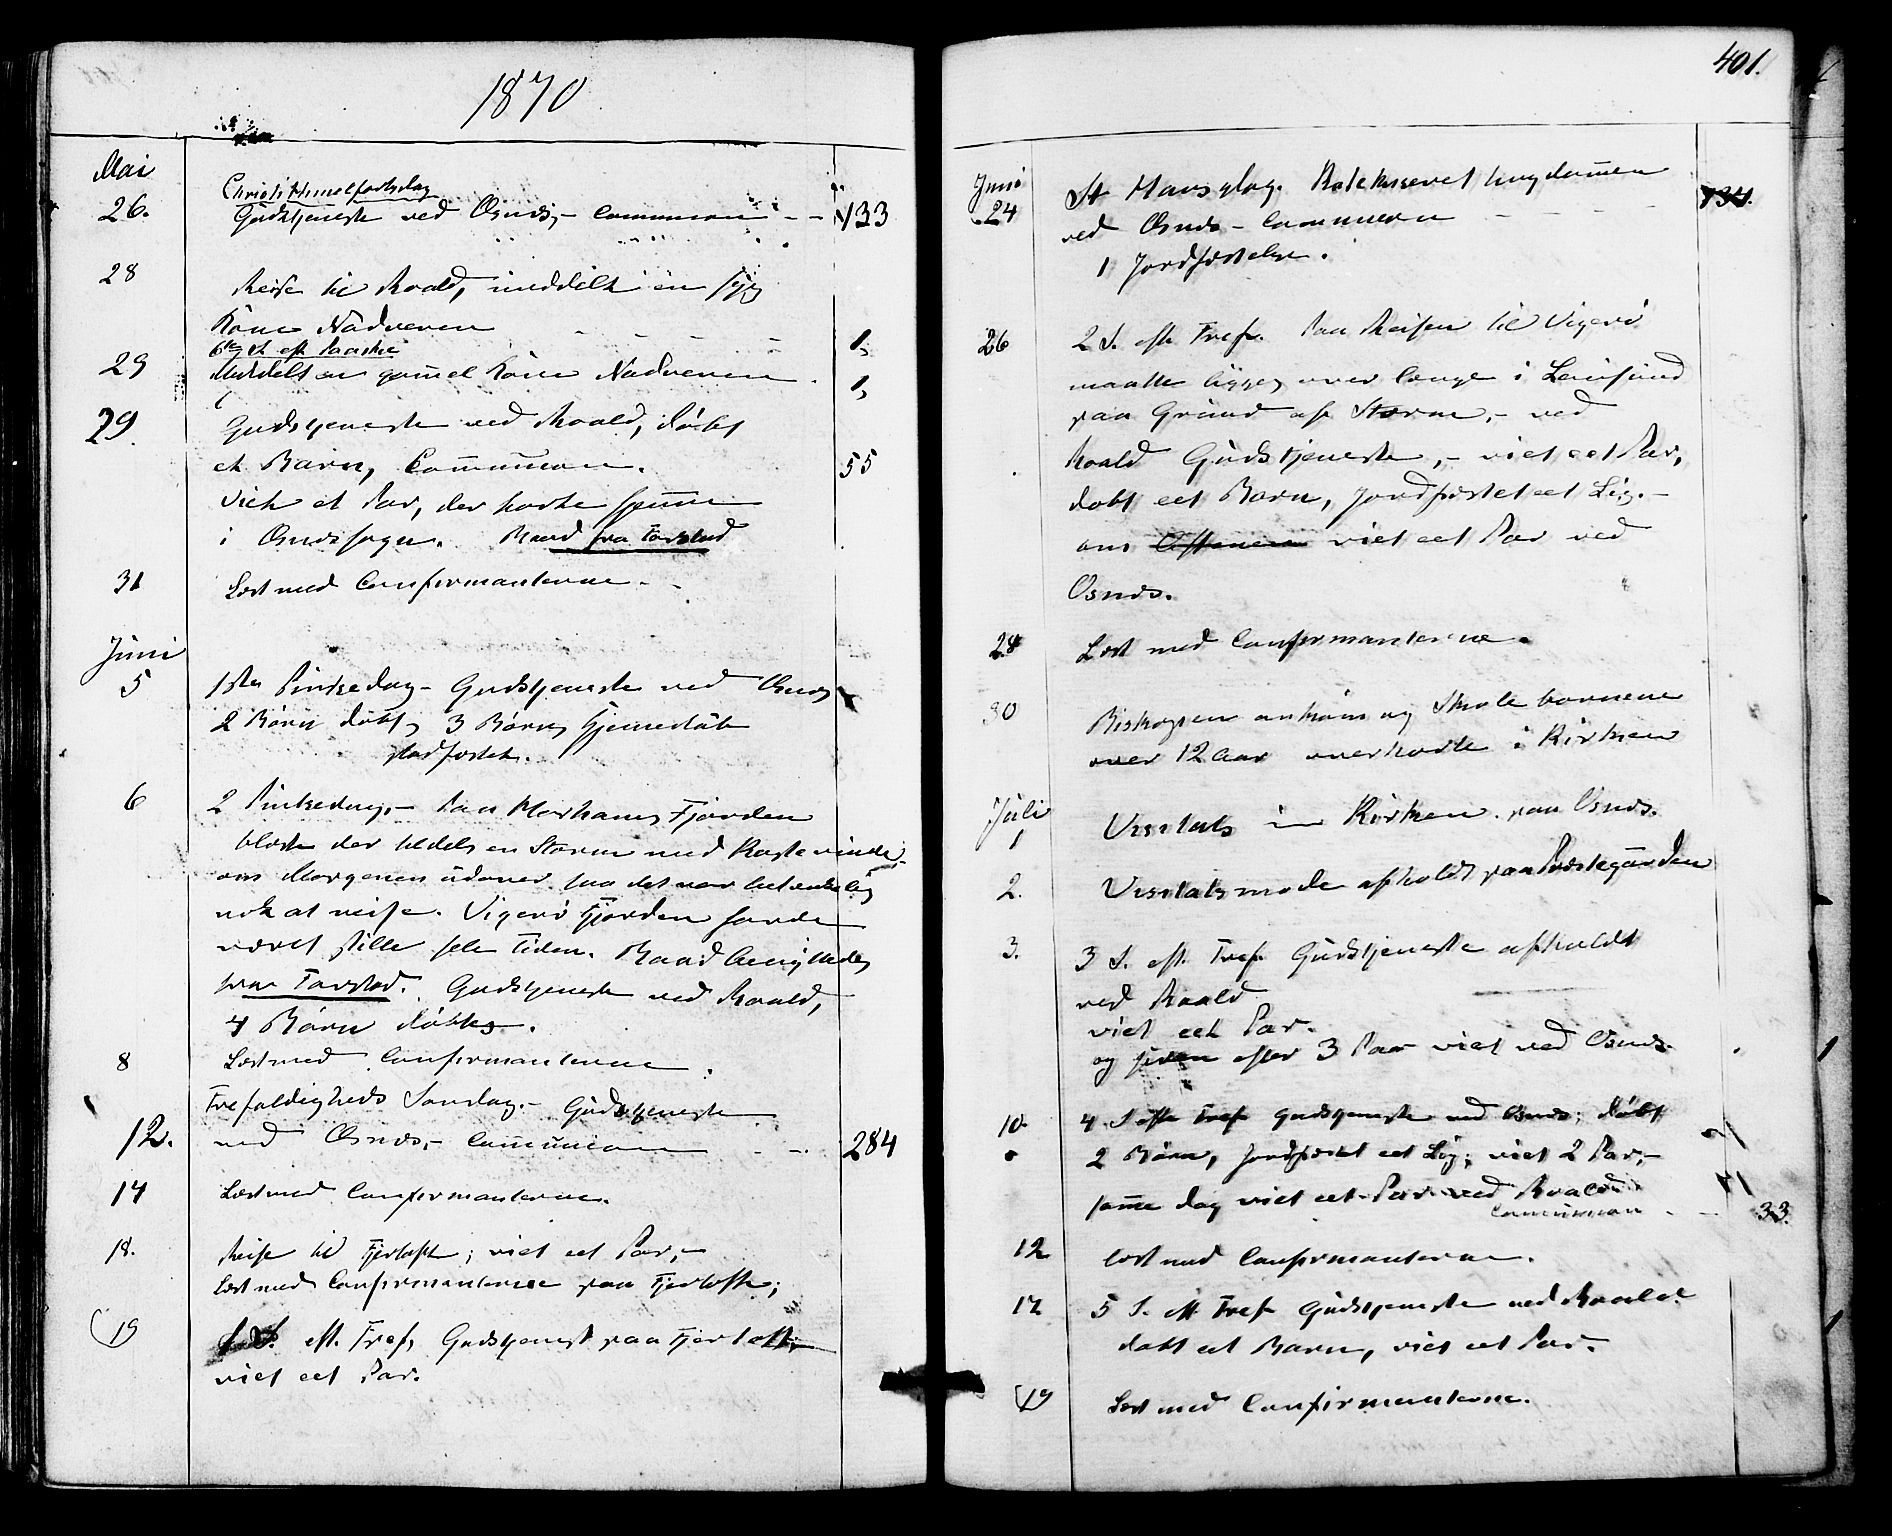 1870
Mai
Christi Himmelfartsdag
26. Gudstjeneste ved Osnæs, – Communion – – 133
28 Reise til Roald, meddelt en syg
Kone Nadveren – – – – 1,
6te S. eft Paaske
29 Meddelt en gammel Kone Nadveren . 1,
29. Gudstjeneste ved Roald, døbt
et Barn, Communion. 55
Viet et Par, der hørte hjemme
i Osnæs sogn. Baad fra Farstad
31 Læst med Confirmanterne –
Juni
5 1ste Pintsedag – Gudstjeneste ved Osnæs
2 Børn døbt, 3 Børns Hjemmedåb
stadfæstet.
6 2 Pintsedag, – Paa Harhams Fjorden
blæste der tildels en Storm med Kastevinde
om Morgenen udover saa det var betænkelig
nok at reise. Vigerø Fjorden havde
været stille hele Tiden. Baad benyttedes
fra Farstad. Gudstjeneste ved Roald,
4 Børn døbtes.
8 Læst med Confirmanterne .
Trefoldigheds Søndag. – Gudstjeneste
12. ved Osnæs, – Communion – – . 284
14 Læst med Confirmanterne.
18. Reise til Fjertoft; viet eet Par, –
Læst med Confirmanterne paa Fjertoft;
19 S. eft. Tref, Gudstjenest paa Fjertoft,
viet eet Par.
401.
Juni
24 St Hans dag. ungdommen
ved Osnæs – Communion – – – – 134.
1 Jordfæstelse.
26 2 S. eft Tref. Paa Reisen til Vigerø
maatte ligges over længe i
paa Grund af Storm, – ved
Roald Gudstjeneste, – viet eet Par,
døbt eet Barn, Jordfæstet eet Lig. –
om Aftenen viet eet Par ved
Osnæs.
28 Læst med Confirmanterne.
30 Biskopen ankom og Skolebørnene
over 12 Aar overhørte i Kirken
Juli
1 Visitats i Kirken paa Osnæs.
2. Visitatsmøde afholdt paa Præstegården
3. 3 S. eft. Tref Gudstjeneste afholdt
ved Roald
viet eet Par.
og siden efter 3 Par viet ved Osnæs.
10. 4 S eft Tref gudstjeneste ved Osnæs; døbt
2 Børn, Jordfæstet eet Lig; viet 2 Par; –
samme dag viet eet Par ved Roald
Communion – – 33.
12 læst med Confirmanterne.
17 5 S. eft Tref Gudstjeneste ved Roald.
døbt eet Barn, viet eet Par. –
19 Læst med Confirmanterne.